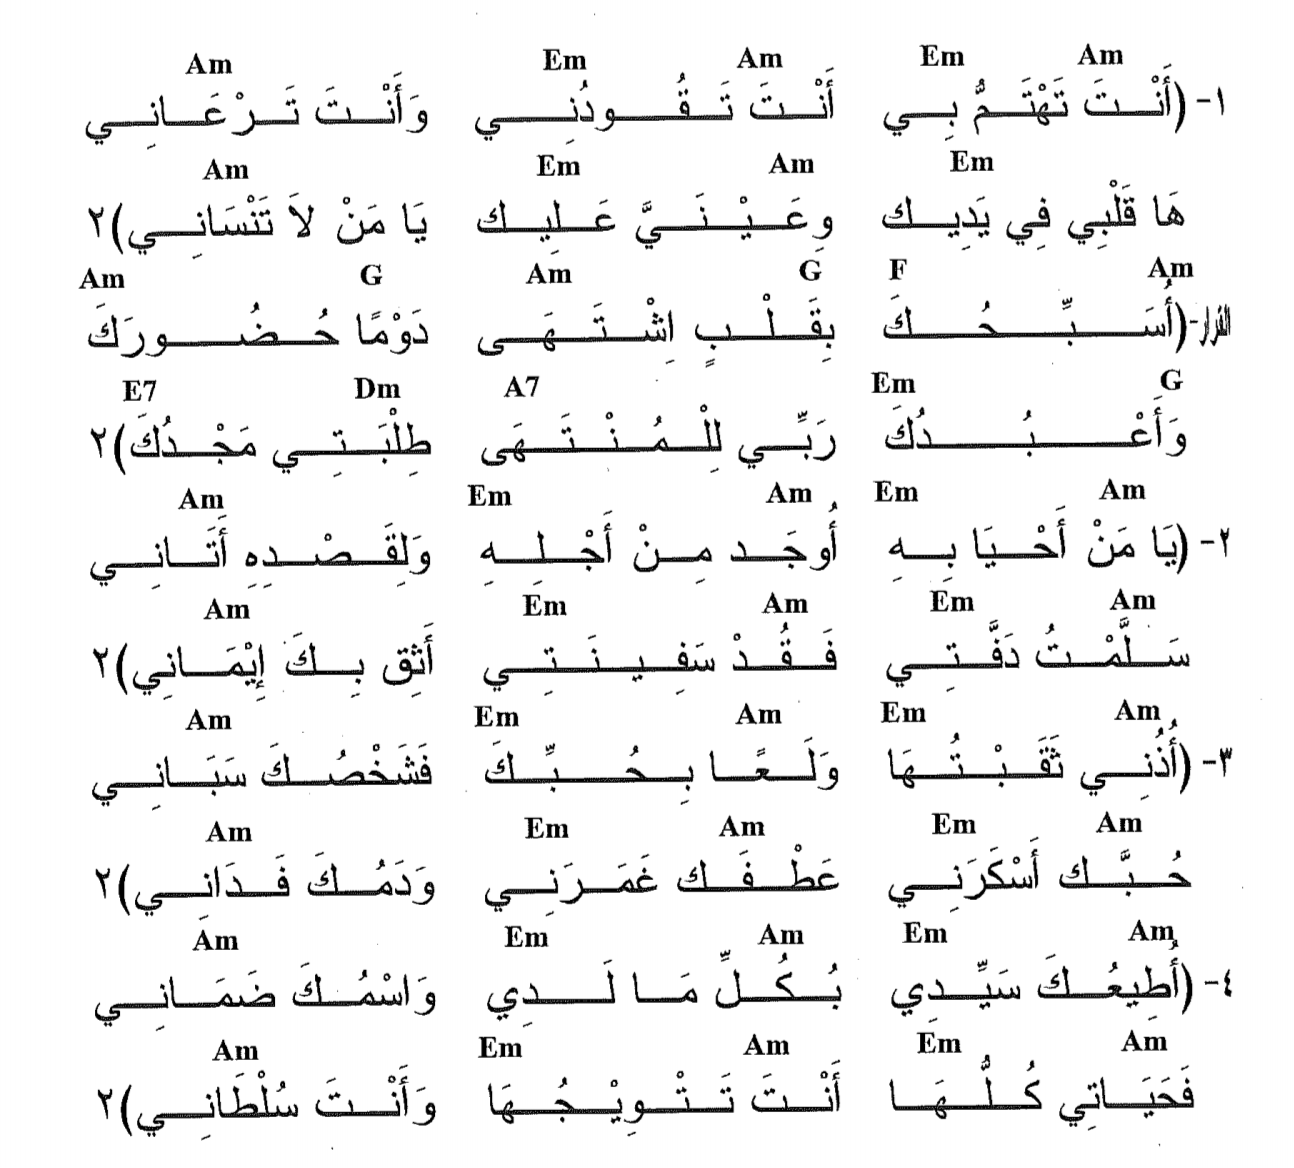 Am Em Am Em Am
١- (أَنْتَ تَهْتَمُّ بِي أَنْتَ تَقُودُنِي وَأَنْتَ تَرْعَانِي
Em Am Em Am
هَا قَلْبِي فِي يَدِيك وعَيْنَيَّ عَلِيك يَا مَنْ لاَ تَنْسَانِي)٢
Am F G Am G Am
القرار-(أُسَبِّحُكَ بِقَلْبٍ اِشْتَهَى دَوْمًا حُضُورَكَ
G Em A7 Dm E7
وَأَعْبُدُكَ رَبِّي لِلْمُنْتَهَى طِلْبَتِي مَجْدُكَ)٢
Am Em Am Em Am
٢- (يَا مَنْ أَحْيَا بِهِ أُوجَد مِنْ أَجْلِهِ وَلِقَصْدِهِ أَتَانِي
Am Em Am Em Am
سَلَّمْتُ دَفَّتِي فَقُدْ سَفِينَتِي أَثِق بِكَ إِيْمَانِي)٢
Am Em Am Em Am
٣- (أُذُنِي ثَقَبْتُهَا وَلَعًا بِحُبِّكَ فَشَخْصُكَ سَبَانِي
Am Em Am Em Am
حُبَّك أَسْكَرَنِي عَطْفَك غَمَرَنِي وَدَمُكَ فَدَانِي)٢
Am Em Am Em Am
٤- (أُطِيعُكَ سَيِّدِي بُكُلِّ مَا لَدِي وَاسْمُكَ ضَمَانِي
Am Em Am Em Am
فَحَيَاتِي كُلُّهَا أَنْتَ تَتْوِيْجُهَا وَأَنْتَ سُلْطَانِي)٢